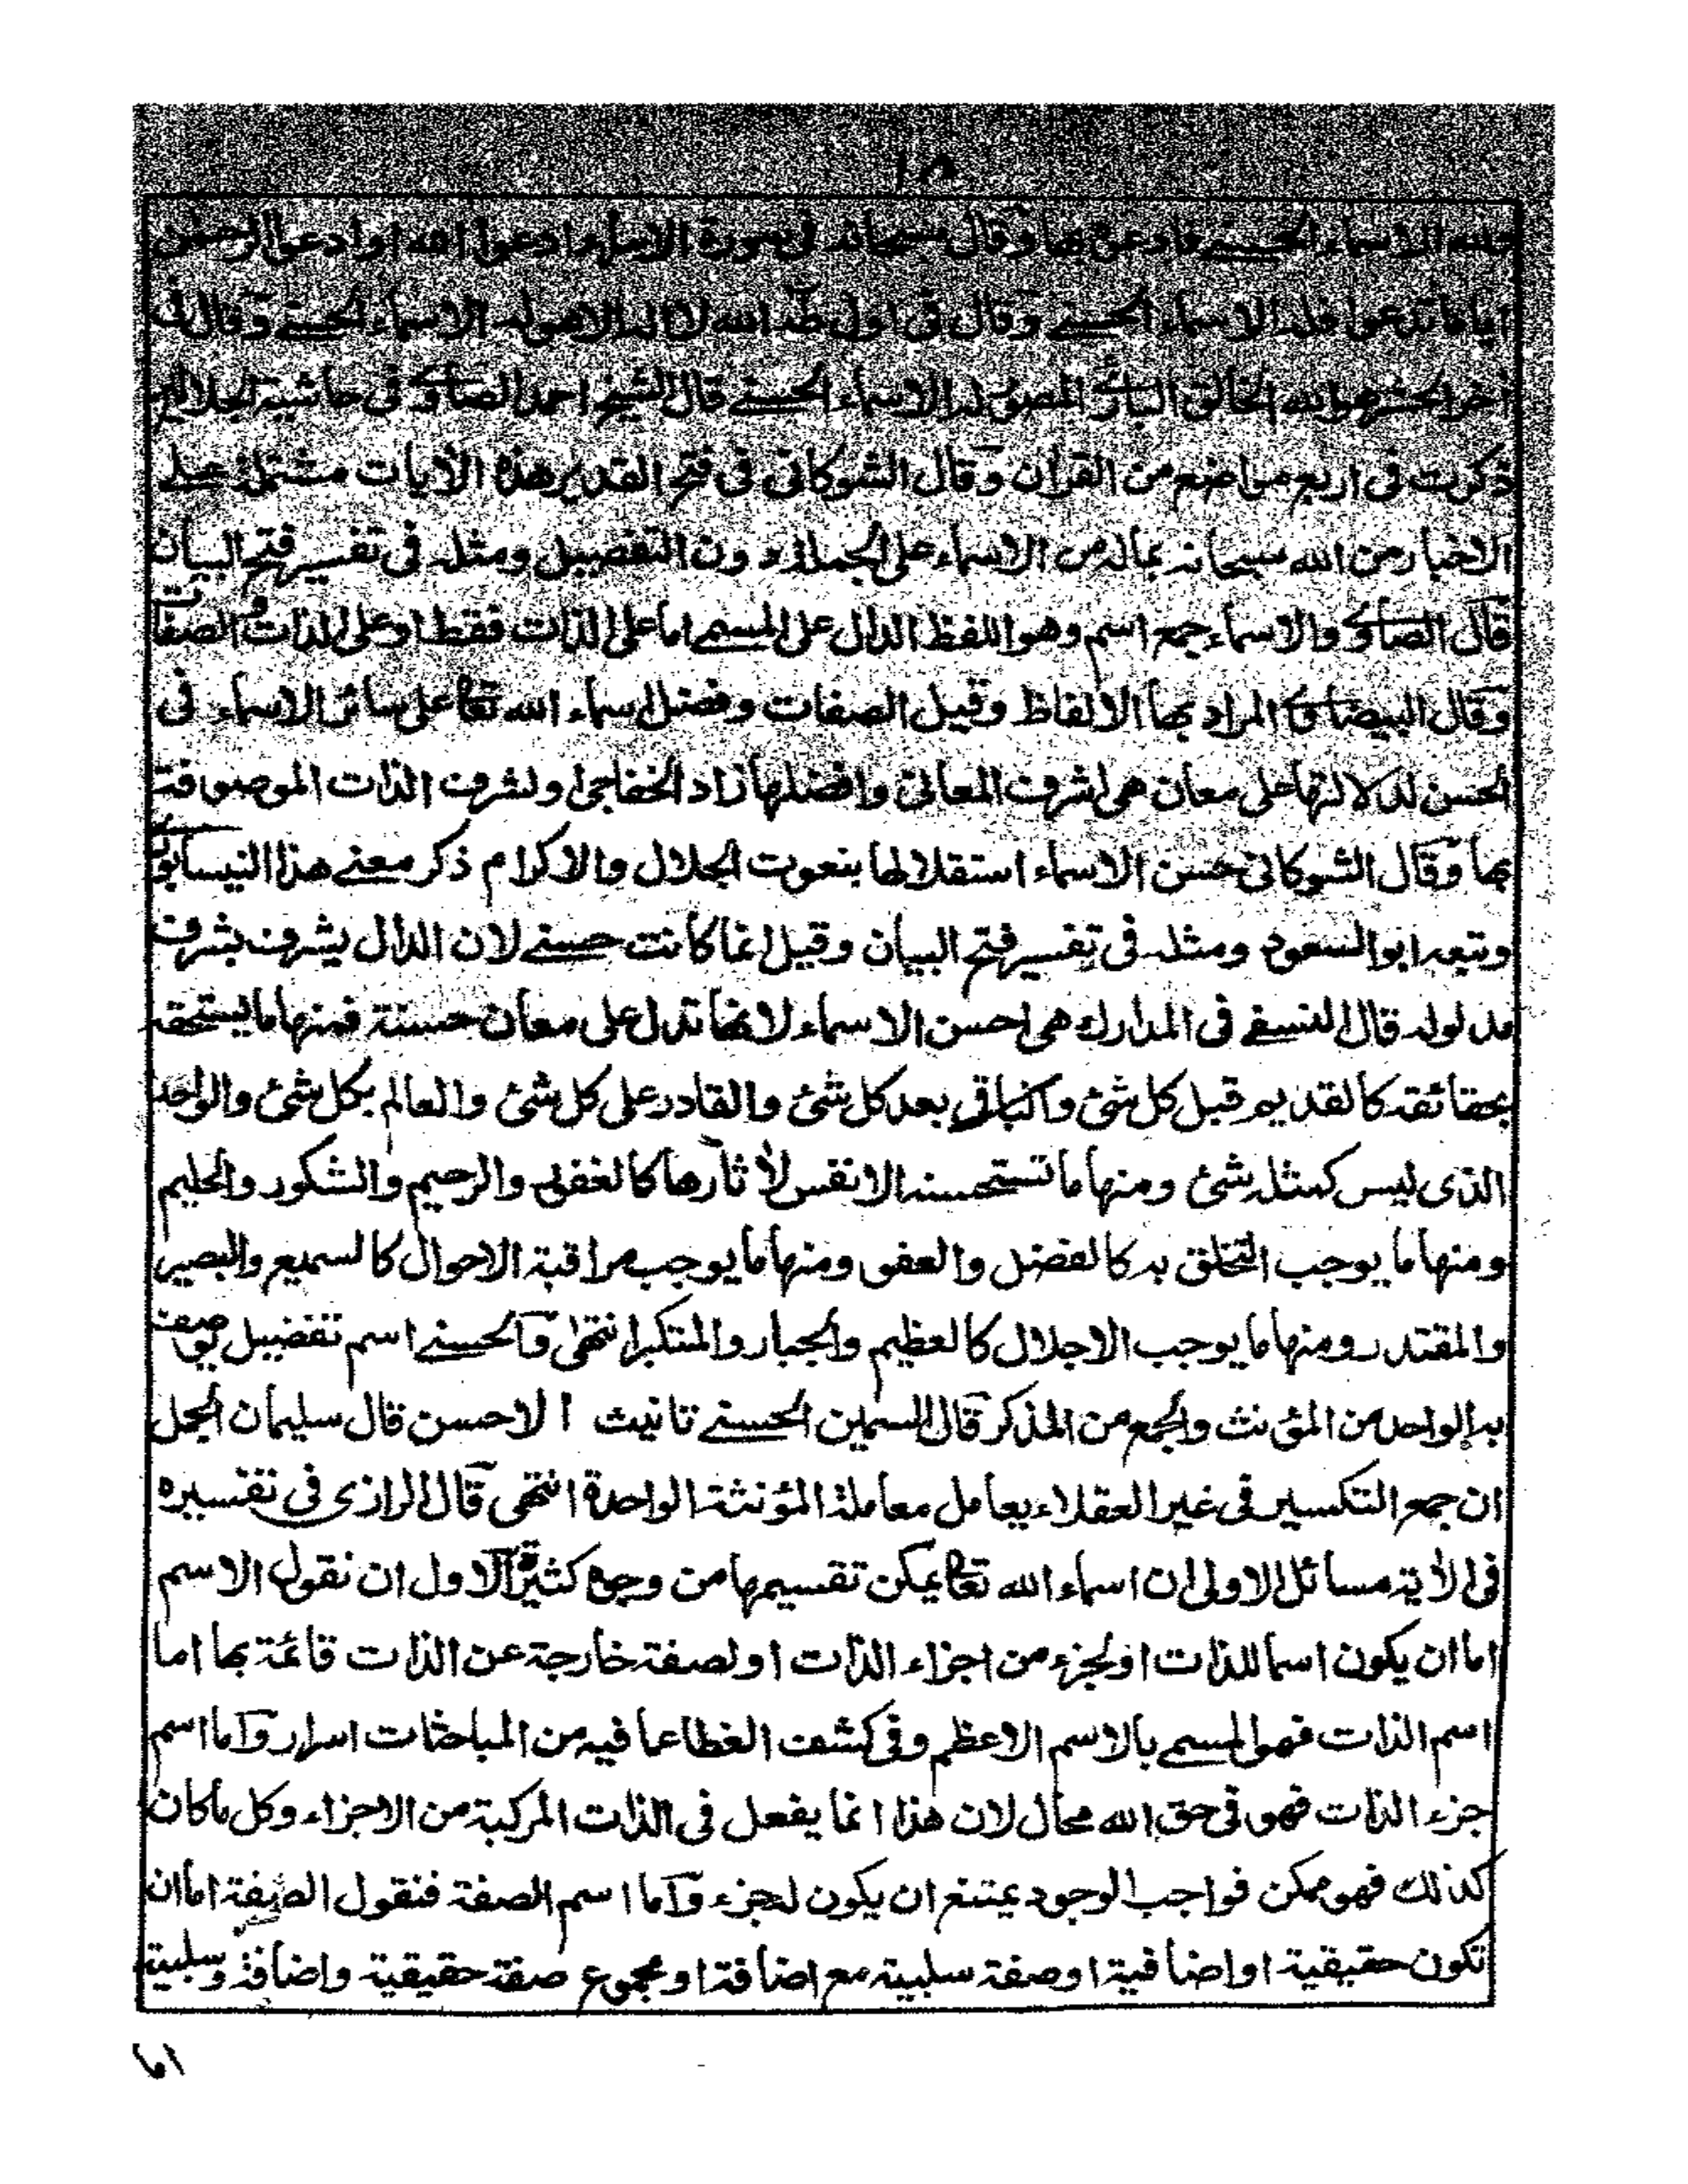 ولله الاسماء الحسنے فادعوه بها وقال سبحانه فی سورة الاسراء ادعوا الله اوادعوا الرحمن
ایاما تدعوا فله الاسماء الحسنے وقال فی اول طه الله لا اله الا هو له الاسماء الحسنے وقال فی
اخر الحشر هو الله الخالق البارئ المصور له الاسماء الحسنے قال الشیخ احمد الصاوی فی حاشیة الجلالین
ذکرت فی اربع مواضع من القرأن وقال الشوکانی فی فتح القدیر هذه الأیات مشتملة علے
الاخبار من الله سبحانه بماله من الاسماء علی الجملة دون التفصیل ومثله فی تفسیر فتح البیان
قال الصاوی والاسماء جمع اسم وهو اللفظ الدال علی المسمے اما علی الذات فقط او علی الذات والصفات
وقال البیضاوی المراد بها الالفاظ وقیل الصفات وفضل اسماء الله تعالی علی سائر الاسماء فی
الحسن لدلالتها علی معان هی اشرف المعانی وافضلها زاد الخفاجی او لشرف الذات الموصوفة
بها وقال الشوکانی حسن الاسماء استقلالها بنعوت الجلال والاکرام ذکر معنے هذا النیسابوری
وتبعه ابو السعود ومثله فی تفسیر فتح البیان وقیل انما کانت حسنے لان الدال یشرف بشرف
مدلوله قال النسفے فی المدارك هی احسن الاسماء لانها تدل علی معان حسنة فمنها ما یستحقه
بحقائقه کالقدیم قبل کل شئ والباقی بعد کل شئ والقادر علی کل شئ والعالم بکل شئ والواحد
الذی لیس کمثله شئ ومنها ما تستحسنه الانفس لأثارها کالغفور والرحیم والشکور والحلیم
ومنها ما یوجب التخلق به کالفضل والعفو ومنها ما یوجب مراقبة الاحوال کالسمیع والبصیر
والمقتدر ومنها ما یوجب الاجلال کالعظیم والجبار والمتکبر انتهی والحسنے اسم تفضیل یوصف
به الواحد من المؤنث والجمع من المذکر قال السمین الحسنے تانیث الاحسن قال سلیمان الجمل
ان جمع التکسیر فی غیر العقلاء یعامل معاملة المؤنثة الواحدة انتهی قال الرازی فی تفسیره
فی الأیة مسائل الاولی ان اسماء الله تعالی یمکن تقسیمها من وجوه کثیرة الاول ان نقول الاسم
اما ان یکون اسما للذات او لجزء من اجزاء الذات او لصفة خارجة عن الذات قائمة بها اما
اسم الذات فهو المسمے بالاسم الاعظم وفی کشف الغطا عما فیه من المباحثات اسرار واما اسم
جزء الذات فهو فی حق الله محال لان هذا انما یفعل فی الذات المرکبة من الاجزاء وکل ما کان
کذلك فهو ممکن فواجب الوجود یمتنع ان یکون لجزء واما اسم الصفة فنقول الصفة اما ان
تکون حقیقیة او اضافیة او صفة سلبیة مع اضافة او مجموع صفة حقیقیة واضافة وسلبیة
اما